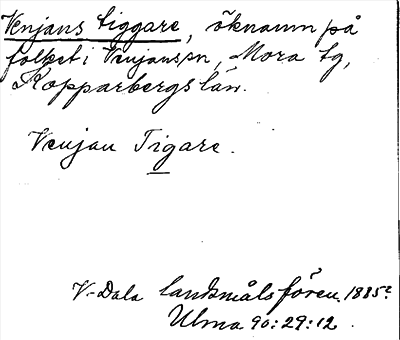 Venjans tiggare, öknamn på
folket i Venjans sn, Mora tg,
Kopparbergs län.
Venjan Tigare.
V-Dala landsmålsfören. 1885?
Ulma 90:29:12.